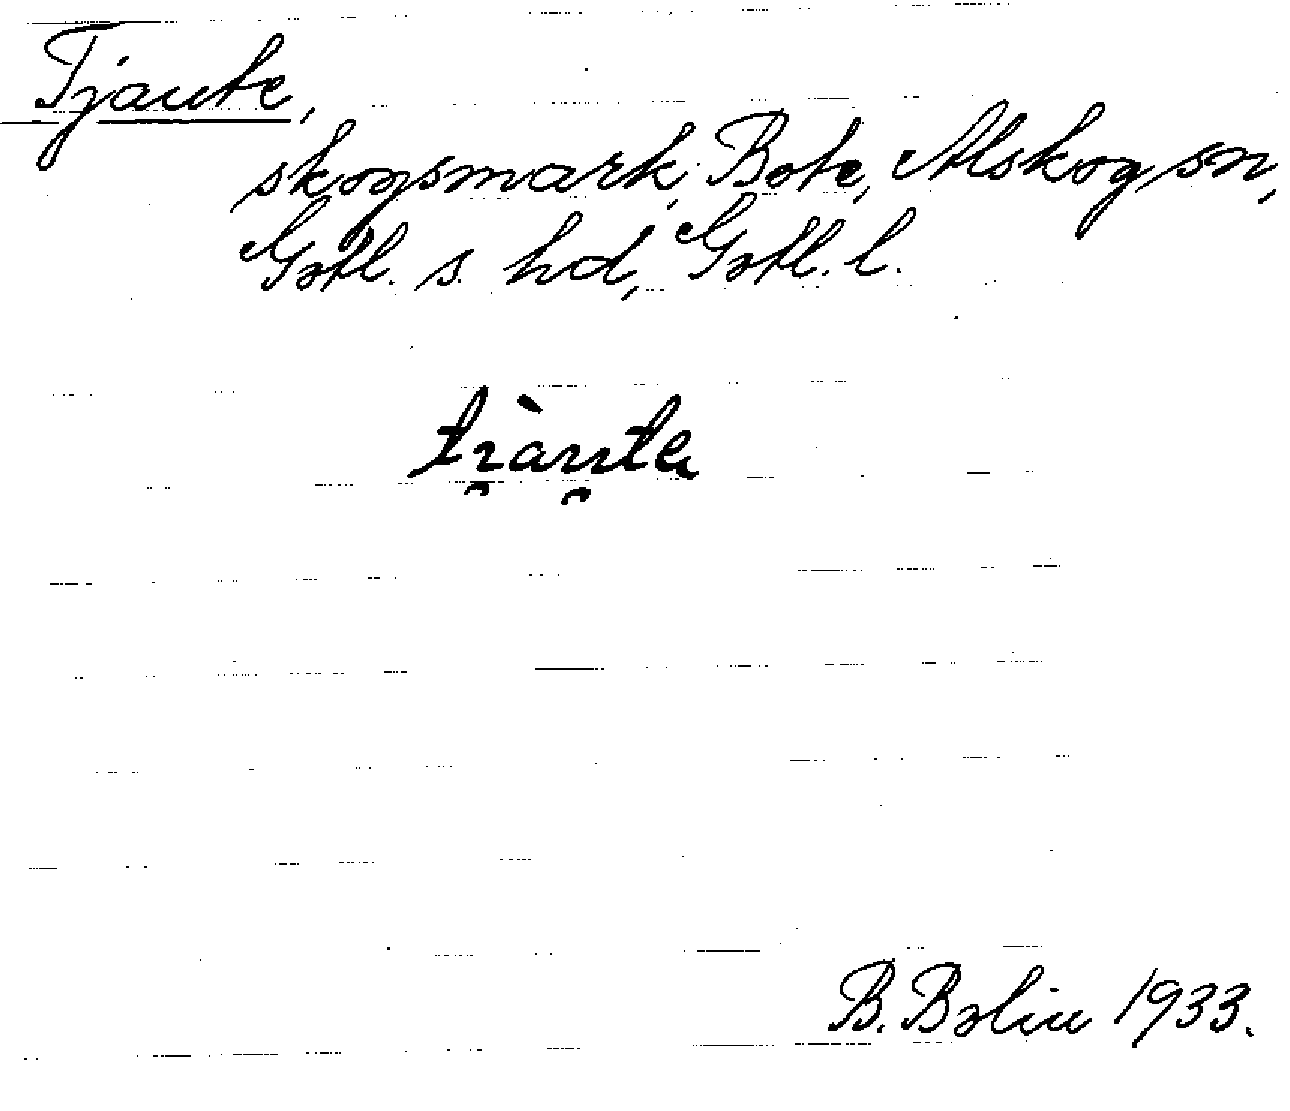 Tjaute,
skogsmark, Bote, Alskog sn,
Gotl. s. hd, Gotl. l.
B. Bolin 1933.